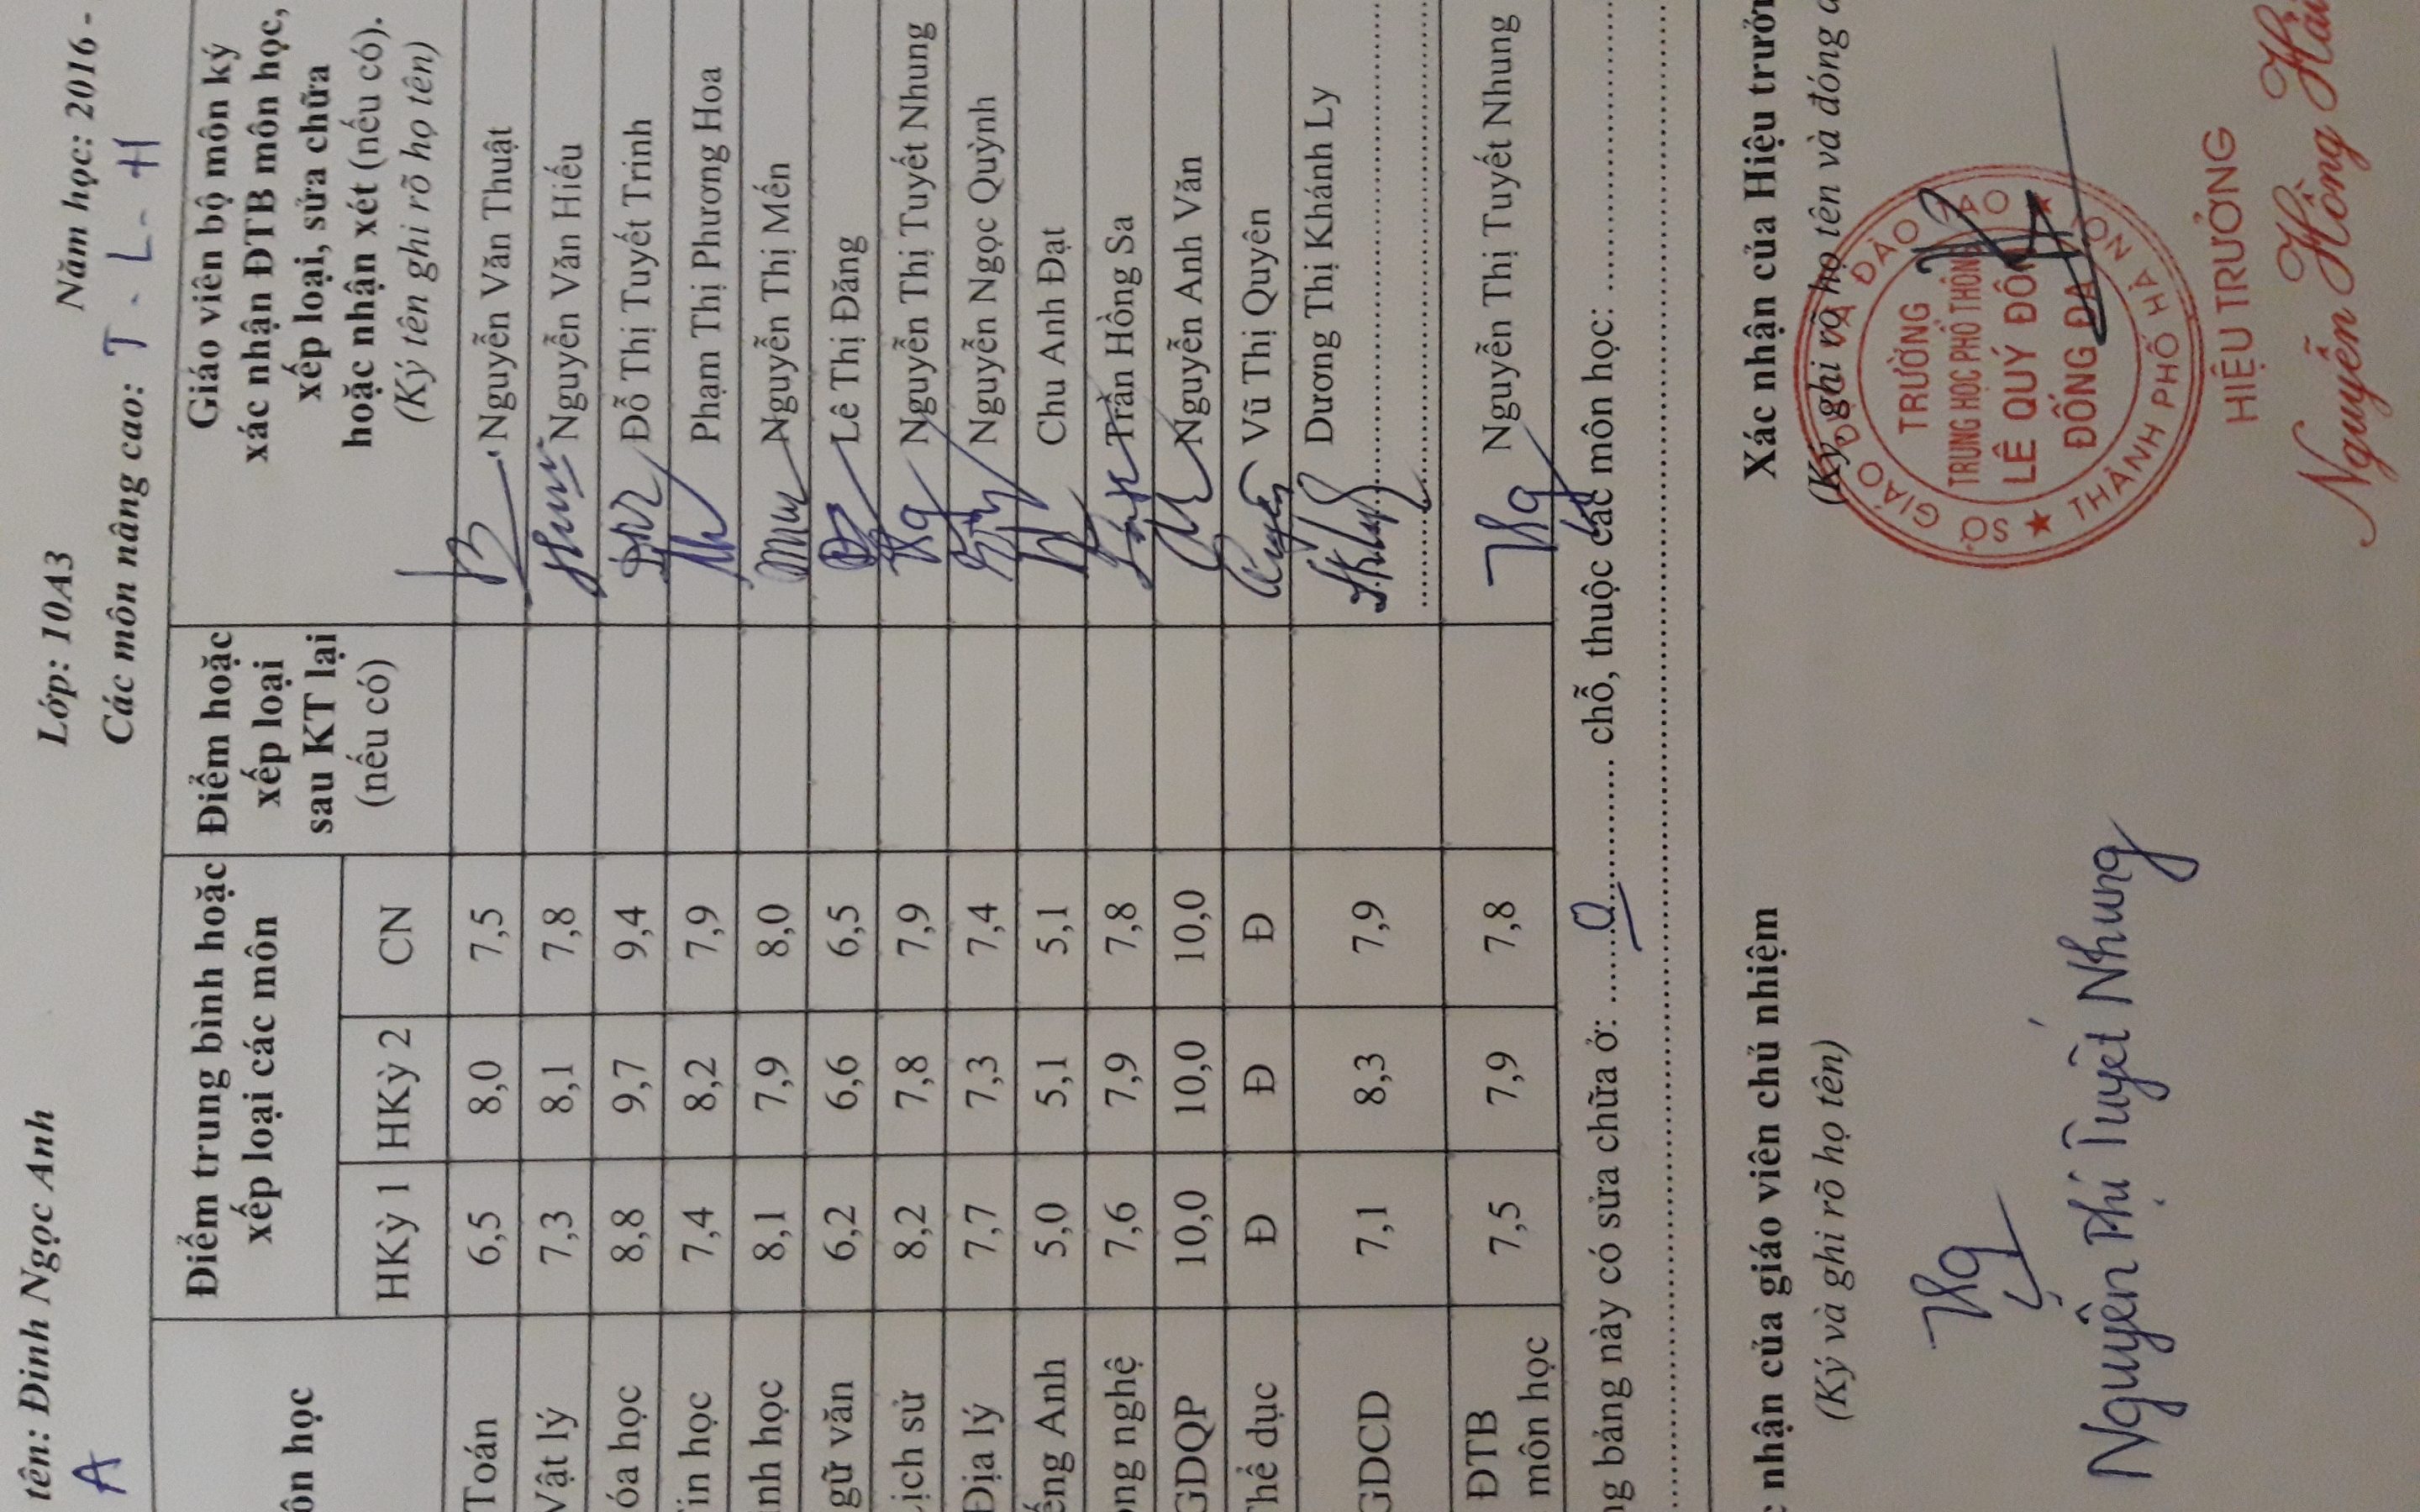 tên: Đinh Ngọc Anh Lớp: 10A3 Năm học: 2016 -
A Các môn nâng cao: T - L - H
ôn học
Điểm trung bình hoặc
xếp loại các môn
HKỳ 1 HKỳ 2 CN
Điểm hoặc
xếp loại
sau KT lại
(nếu có)
Giáo viên bộ môn ký
xác nhận ĐTB môn học,
xếp loại, sửa chữa
hoặc nhận xét (nếu có).
(Ký tên ghi rõ họ tên)
Toán 6,5 8,0 7,5 Nguyễn Văn Thuật
Vật lý 7,3 8,1 7,8 Nguyễn Văn Hiếu
óa học 8,8 9,7 9,4 Đỗ Thị Tuyết Trinh
in học 7,4 8,2 7,9 Phạm Thị Phương Hoa
inh học 8,1 7,9 8,0 Nguyễn Thị Mến
gữ văn 6,2 6,6 6,5 Lê Thị Đăng
Lịch sử 8,2 7,8 7,9 Nguyễn Thị Tuyết Nhung
Địa lý 7,7 7,3 7,4 Nguyễn Ngọc Quỳnh
ếng Anh 5,0 5,1 5,1 Chu Anh Đạt
ông nghệ 7,6 7,9 7,8 Trần Hồng Sa
GDQP 10,0 10,0 10,0 Nguyễn Anh Văn
Thể dục Đ Đ Đ Vũ Thị Quyên
GDCD 7,1 8,3 7,9 Dương Thị Khánh Ly
ĐTB
môn học 7,5 7,9 7,8 Nguyễn Thị Tuyết Nhung
ng bảng này có sửa chữa ở: ......0.............. chỗ, thuộc các môn học: ..............
c nhận của giáo viên chủ nhiệm
(Ký và ghi rõ họ tên)
Nguyễn Thị Tuyết Nhung
Xác nhận của Hiệu trưởn
(Ký, ghi rõ họ tên và đóng d
SỞ GIÁO DỤC VÀ ĐÀO TẠO
THÀNH PHỐ HÀ NỘI
TRƯỜNG
TRUNG HỌC PHỔ THÔNG
LÊ QUÝ ĐÔN
ĐỐNG ĐA
HIỆU TRƯỞNG
Nguyễn Hồng Hải